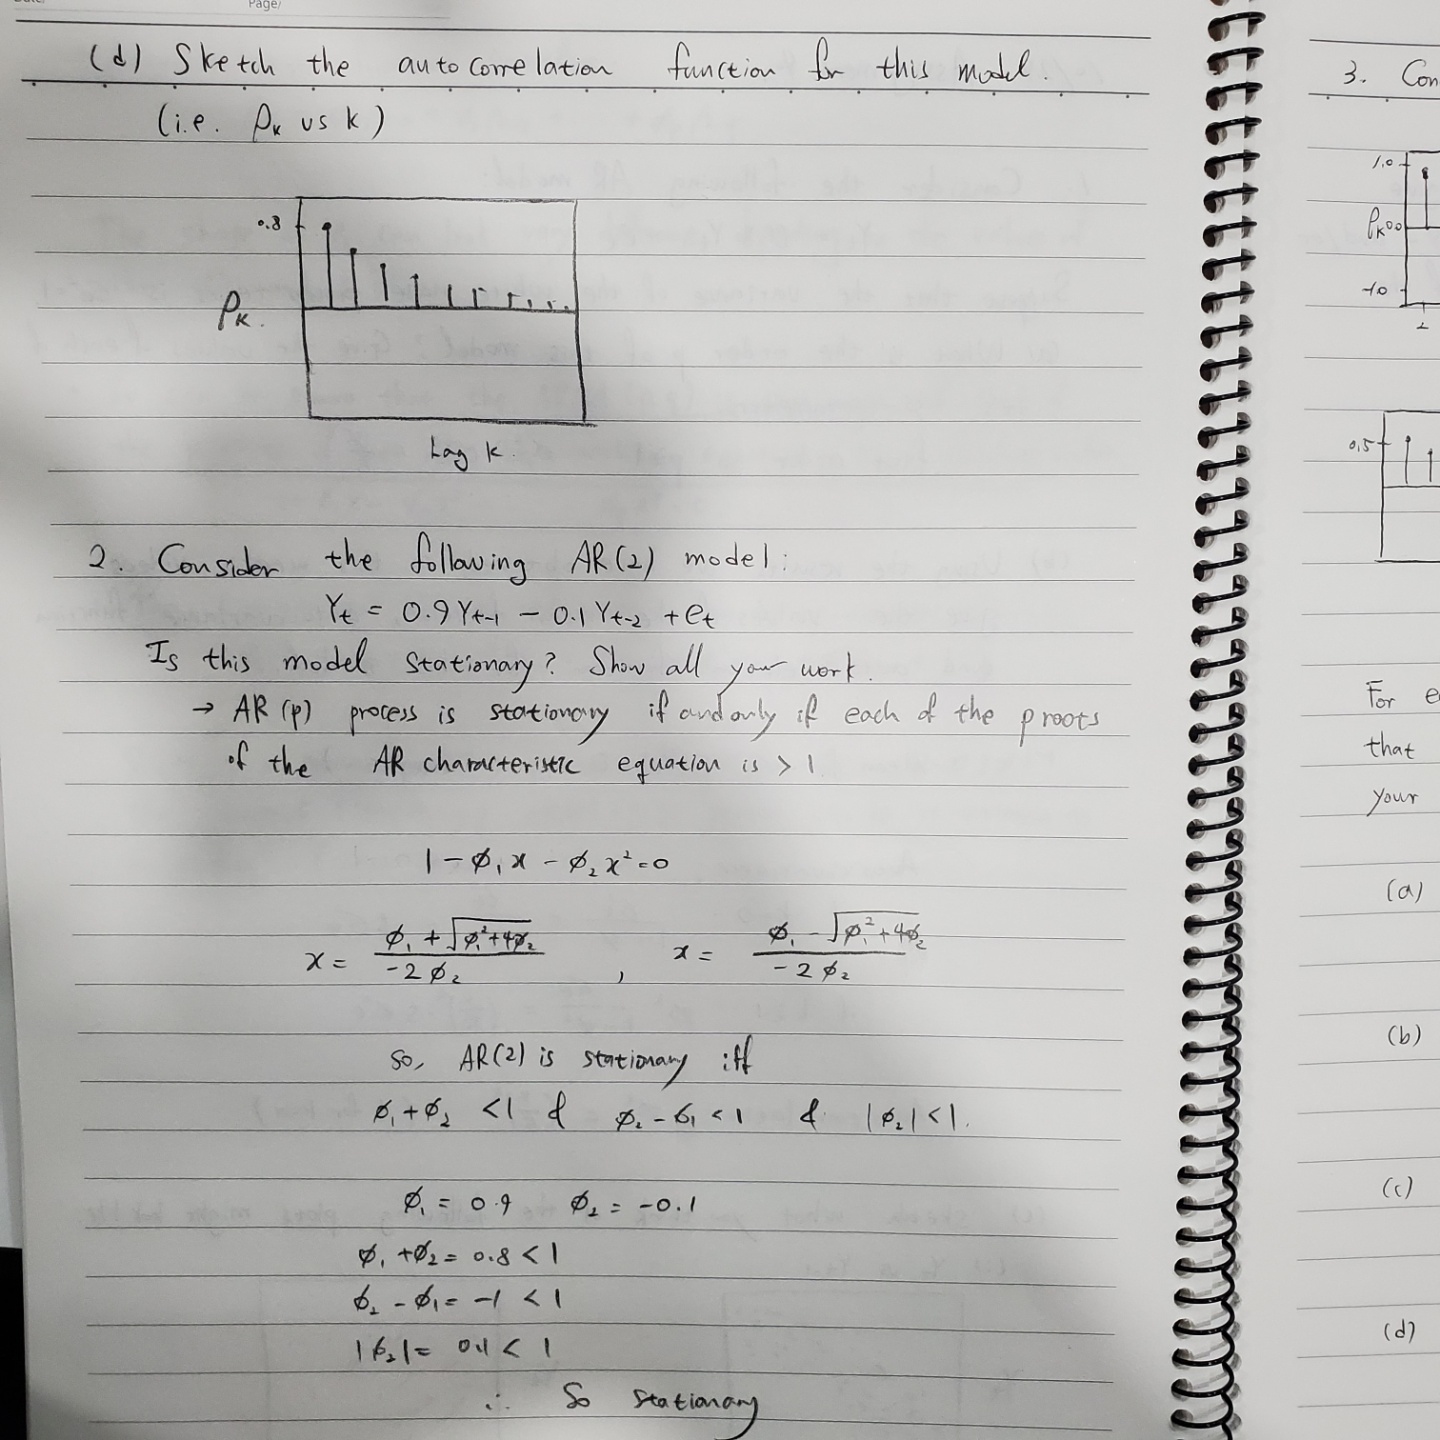 Page/
(d) Sketch the autocorrelation function for this model.
(i.e. ρk vs k)
0.8
ρk.
Lag k.
2. Consider the following AR(2) model:
Yt = 0.9Yt-1 - 0.1Yt-2 + et
Is this model stationary? Show all your work.
→ AR(p) process is stationary if and only if each of the p roots
of the AR characteristic equation is > 1
1 - ϕ₁x - ϕ₂x² = 0
x = ϕ₁ + √ϕ₁²+4ϕ₂ / -2ϕ₂ , x = ϕ₁ - √ϕ₁²+4ϕ₂ / -2ϕ₂
So, AR(2) is stationary iff
ϕ₁+ϕ₂ <1 & ϕ₂-ϕ₁<1 & |ϕ₂|<1.
ϕ₁ = 0.9 ϕ₂ = -0.1
ϕ₁+ϕ₂ = 0.8 < 1
ϕ₂-ϕ₁ = -1 < 1
|ϕ₂| = 0.1 < 1
∴ So stationary
3. Con
1.0
ρk 0.0
-1.0
0.5
For e
that
your
(a)
(b)
(c)
(d)